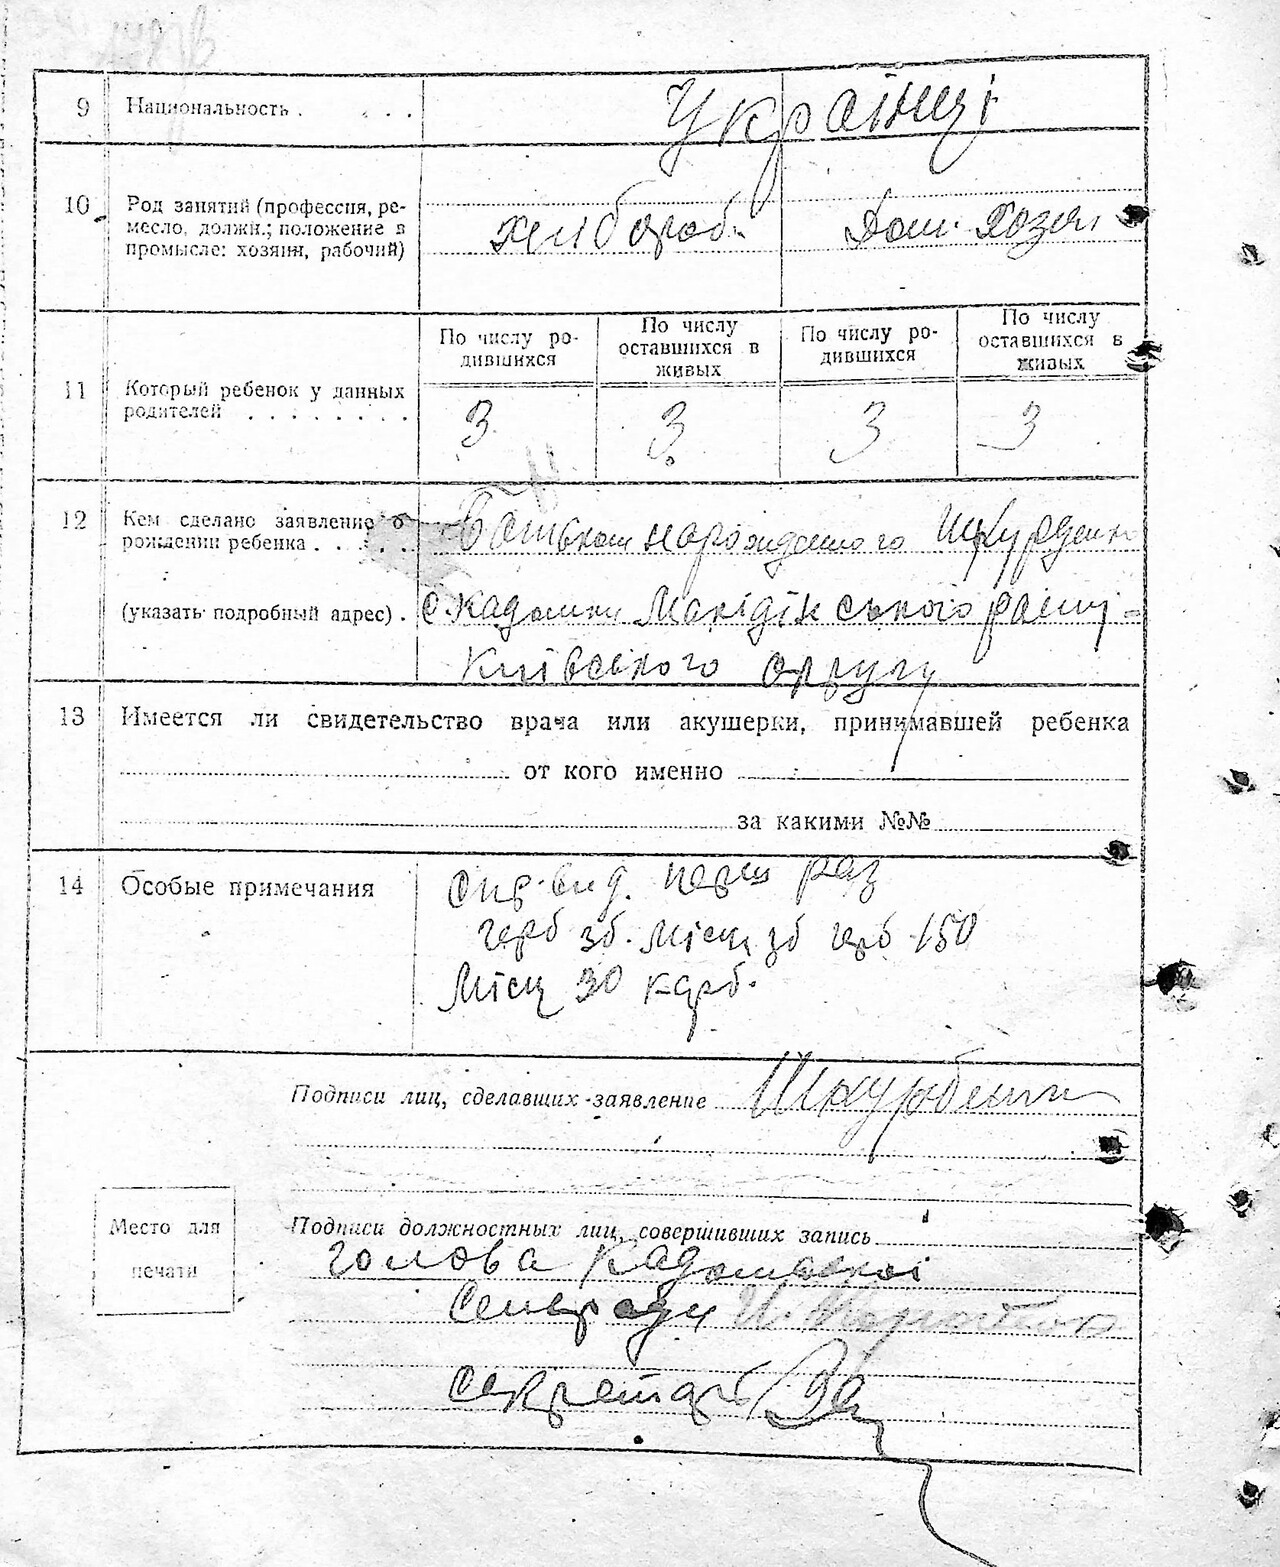 9 Национальность . . . . Українці
10 Род занятий (профессия, ре-
месло, должн.; положение в
промысле: хозяин, рабочий)
хлібороб. Дом. Хозял
По числу ро-
дившихся
По числу
оставшихся в
живых
По числу ро-
дившихся
По числу
оставшихся в
живых
11 Который ребенок у данных
родителей . . . . . . . .
3 3 3 3
12 Кем сделано заявление о
рождении ребенка . . . . .
Батьком нарожденого
(указать подробный адрес) .
с. Кадомки
Київського округу
13 Имеется ли свидетельство врача или акушерки, принимавшей ребенка
от кого именно
за какими №№
14 Особые примечания
перш раз
герб зб. Місц зб герб 150
Місц 30 карб.
Подписи лиц, сделавших заявление
Место для
печати
Подписи должностных лиц, совершивших запись
Голова
Сельради
Секретарь